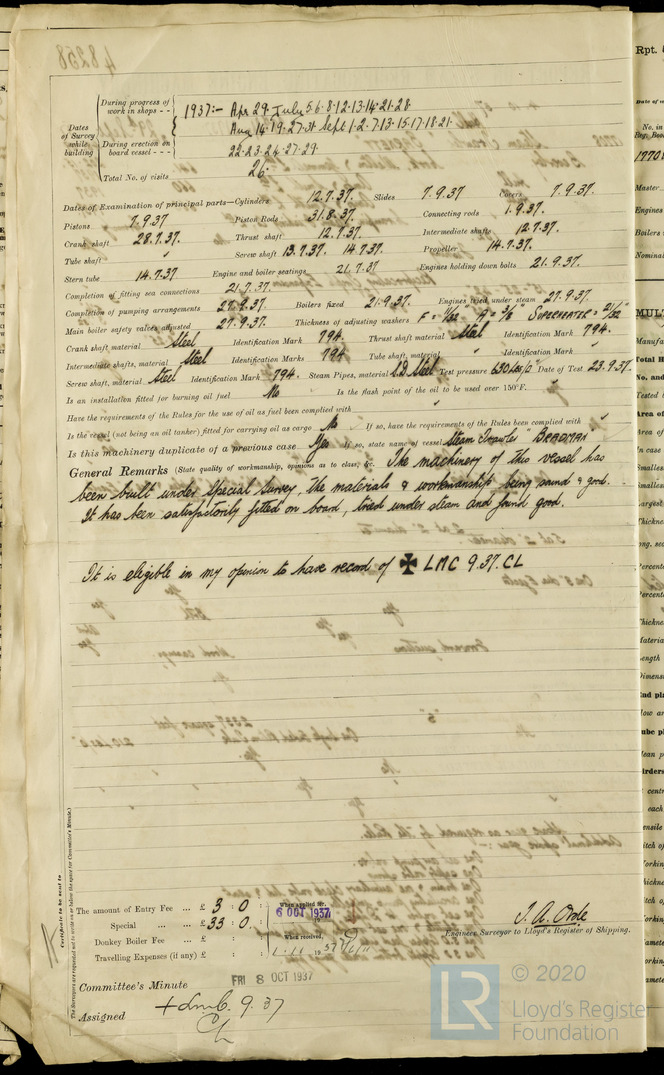 48258
Dates of Survey while building
During progress of work in shops - -
1937:- Apr 29. July 5.6.8.12.13.14.21.28.
Aug 14.19.27.31 Sept 1.2.7.13.15.17.18.21.
During erection on board vessel - - -
22.23.24.27.29.
Total No. of visits 26.
Dates of Examination of principal parts—Cylinders 12.7.37. Slides 7.9.37 Covers 7.9.37.
Pistons 7.9.37 Piston Rods 31.8.37. Connecting rods 1.9.37.
Crank shaft 28.7.37. Thrust shaft 12.7.37. Intermediate shafts 12.7.37.
Tube shaft Screw shaft 13.7.37. 14.7.37. Propeller 14.7.37.
Stern tube 14.7.37 Engine and boiler seatings 21.7.37 Engines holding down bolts 21.9.37.
Completion of fitting sea connections 21.7.37.
Completion of pumping arrangements 27.9.37. Boilers fixed 21.9.37. Engines tried under steam 27.9.37.
Main boiler safety valves adjusted 27.9.37. Thickness of adjusting washers
Crank shaft material Steel Identification Mark 794. Thrust shaft material Steel Identification Mark 794.
Intermediate shafts, material Steel Identification Marks 794 Tube shaft, material " Identification Mark "
Screw shaft, material Steel Identification Mark 794. Steam Pipes, material S.D. Steel Test pressure 630 lbs/□" Date of Test 23.9.37.
Is an installation fitted for burning oil fuel No Is the flash point of the oil to be used over 150°F.
Have the requirements of the Rules for the use of oil as fuel been complied with
Is the vessel (not being an oil tanker) fitted for carrying oil as cargo No If so, have the requirements of the Rules been complied with
Is this machinery duplicate of a previous case Yes If so, state name of vessel Steam Trawler
General Remarks (State quality of workmanship, opinions as to class, &c. The machinery of this vessel has
been built under Special Survey, the materials & workmanship being sound & good.
It has been satisfactorily fitted on board, tried under steam and found good.
It is eligible in my opinion to have record of ✠ LMC 9.37. CL
Certificate to be sent to
The Surveyors are requested not to write on or below the space for Committee's Minute.
The amount of Entry Fee ... £ 3 : 0 : When applied for,
Special ... ... £ 33 : 0 : 6 OCT 1937
Donkey Boiler Fee ... £ : : When received,
Travelling Expenses (if any) £ : :
J. A. Orde
Engineer Surveyor to Lloyd's Register of Shipping.
Committee's Minute FRI 8 OCT 1937
Assigned + LMC. 9.37
CL
LR © 2020
Lloyd's Register
Foundation